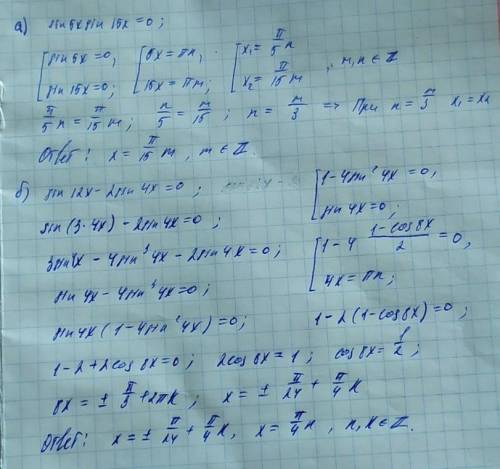 а) sin 5x sin 15x = 0;
[ sin 5x = 0, sin 15x = 0; [ 5x = πn, 15x = πm; [ x₁ = π/5 n, x₂ = π/15 m , m, n ∈ Z
π/5 n = π/15 m; n/5 = m/15; n = m/3 => При n = m/3 x₁ = x₂
Ответ: x = π/15 m, m ∈ Z.
б) sin 12x - 2sin 4x = 0;
sin(3·4x) - 2sin 4x = 0;
3sin 4x - 4sin³ 4x - 2sin 4x = 0;
sin 4x - 4sin³ 4x = 0;
sin 4x (1 - 4sin² 4x) = 0;
[ 1 - 4sin² 4x = 0, sin 4x = 0;
[ 1 - 4 (1 - cos 8x)/2 = 0, 4x = πn;
1 - 2(1 - cos 8x) = 0;
1 - 2 + 2cos 8x = 0; 2cos 8x = 1; cos 8x = 1/2;
8x = ± π/3 + 2πk; x = ± π/24 + π/4 k
Ответ: x = ± π/24 + π/4 k, x = π/4 n, n, k ∈ Z.